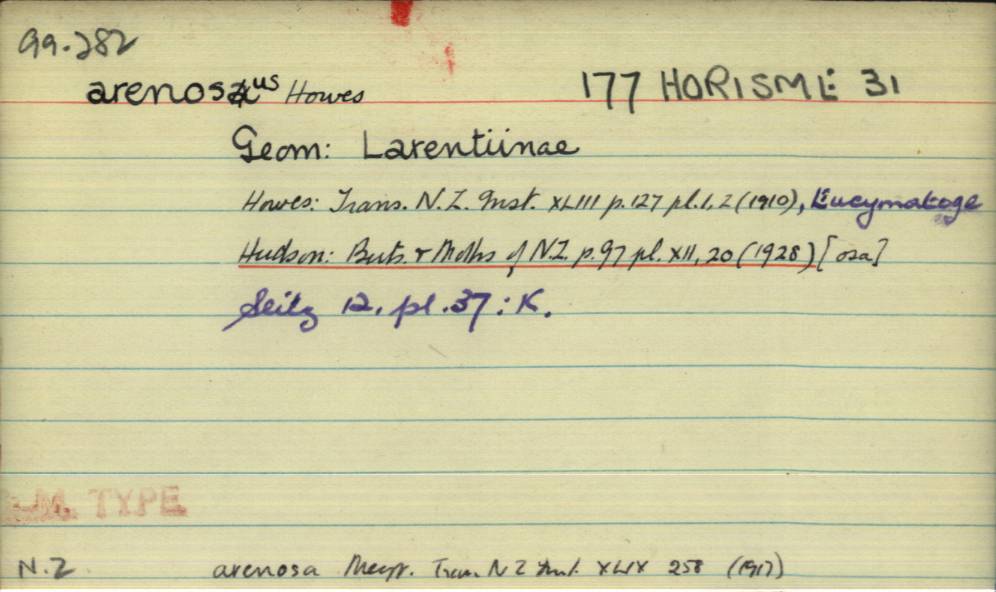 99.282
arenosus Howes 177 HORISME 31
Geom: Larentiinae
Howes: Trans. N.Z. Inst. XLIII p.127 pl.1,2 (1910), Eucymatoge
Hudson: Buts. & Moths of N.Z. p.97 pl. XII, 20 (1928) [osa]
Seitz 12. pl. 37: K.
M. TYPE
N.Z arenosa Meyr. Trans. N Z Inst. XLIX 258 (1917)